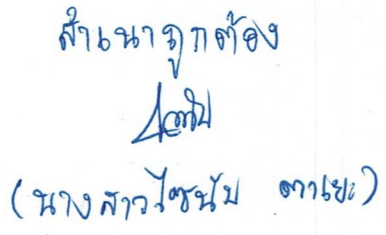 สำเนาถูกต้อง
(นางสาวไซนับ ตาเยะ)